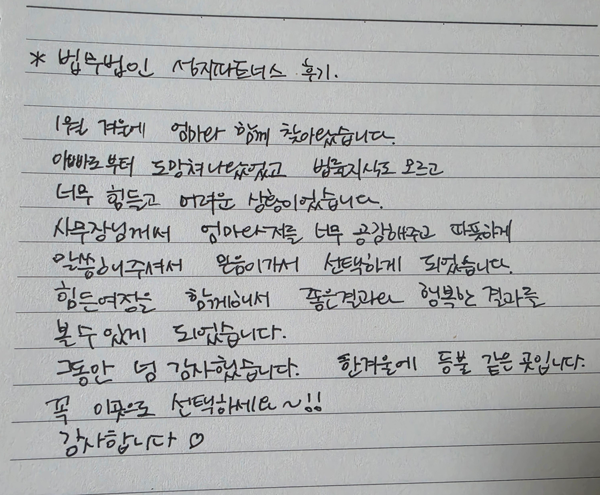 * 법무법인 성지파트너스 후기.
1월 겨울에 엄마와 함께 찾아왔습니다.
아빠로부터 도망쳐나왔었고 법률지식도 모르고
너무 힘들고 어려운 상황이었습니다.
사무장님께서 엄마와저를 너무 공감해주고 따뜻하게
말씀해주셔서 믿음이가서 선택하게 되었습니다.
힘든여정을 함께해서 좋은결과와 행복한 결과를
볼수있게 되었습니다.
그동안 넘 감사했습니다. 한겨울에 등불 같은 곳입니다.
꼭 이곳으로 선택하세요~!!
감사합니다 ♡